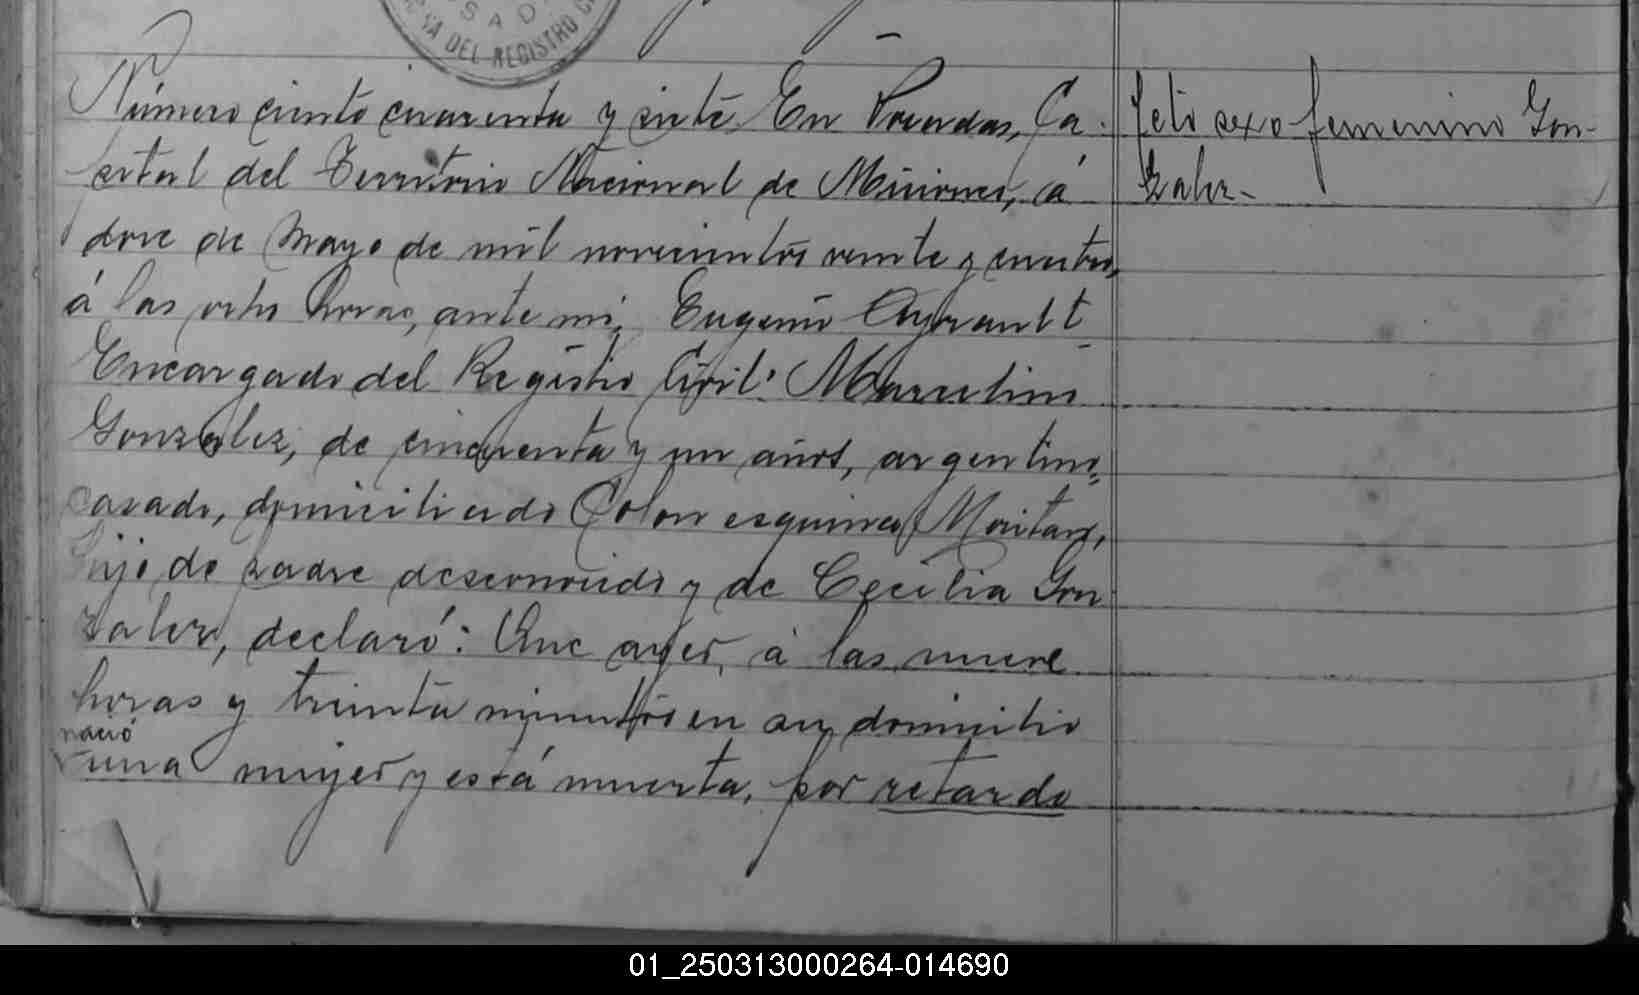 SAD
VA DEL REGISTRO C
Número ciento cuarenta y siete. En Posadas, Ca-
pital del Territorio Nacional de Misiones, á
doce de Mayo de mil novecientos veinte y cuatro,
á las ocho horas, ante mi, Eugenio Ayrault
Encargado del Registro Civil: Marcelino
Gonzalez, de cincuenta y un años, argentino,
casado, domiciliado Colon esquina
hijo de padre desconocido y de Cecilia Gon
zalez, declaró: Que ayer, á las nueve
horas y treinta minutos en su domicilio
nació
una mujer y está muerta, por retardo
feto sexo femenino Gon-
zalez-
01_250313000264-014690